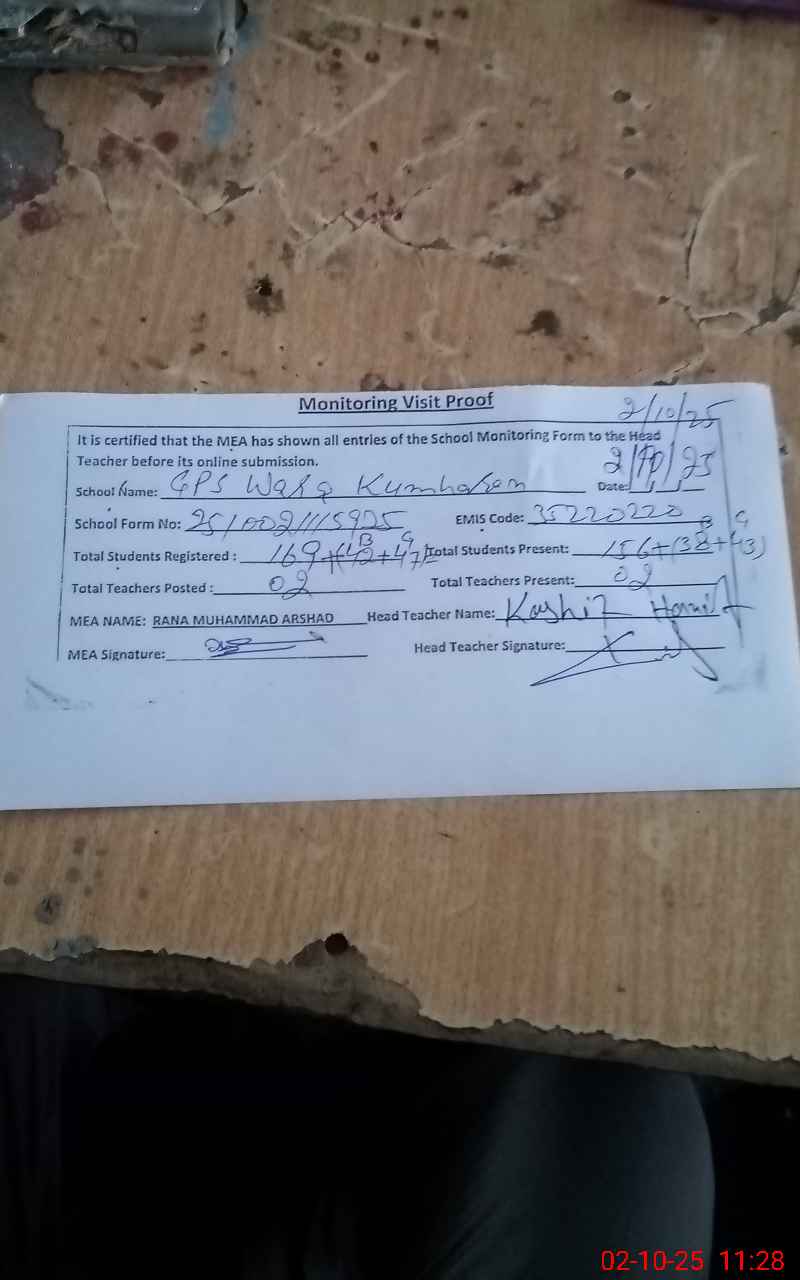 Monitoring Visit Proof
2/10/25
It is certified that the MEA has shown all entries of the School Monitoring Form to the Head
Teacher before its online submission.
School Name: GPS Wara Kumharan Date: 2/10/25
School Form No: 2510021115925 EMIS Code: 35220220
Total Students Registered : 169+(42+47) Total Students Present: 156+(38+43)
B G B G
Total Teachers Posted : 02 Total Teachers Present: 02
MEA NAME: RANA MUHAMMAD ARSHAD Head Teacher Name: Kashif
MEA Signature: Head Teacher Signature:
02-10-25 11:28